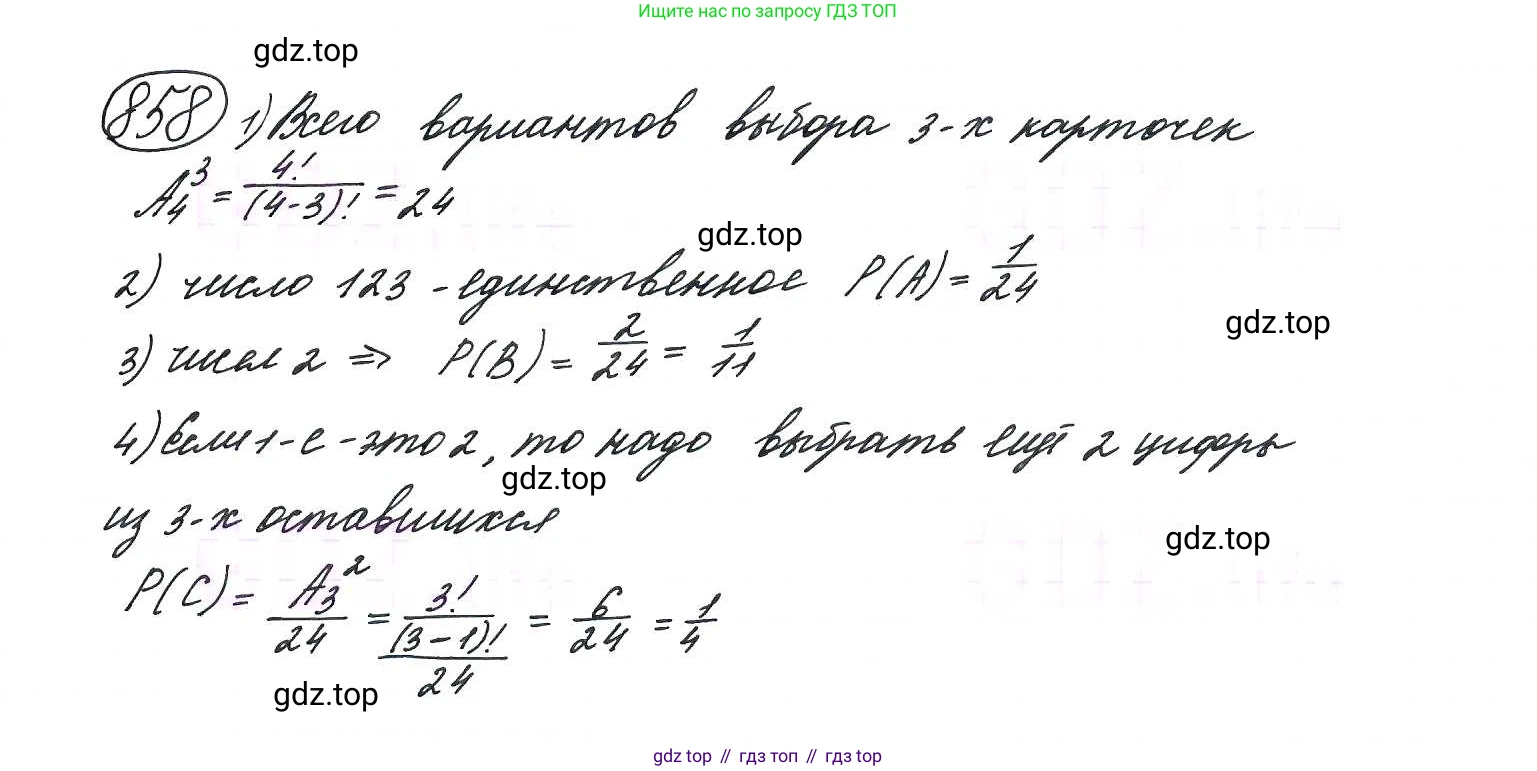 Ищите нас по запросу ГДЗ ТОП
gdz.top
858 1) Всего вариантов выбора 3-х карточек
A₄³ = 4!/(4-3)! = 24
gdz.top
2) число 123 - единственное P(A) = 1/24
gdz.top
3) чисел 2 ⇒ P(B) = 2/24 = 1/11
4) Если 1-е - это 2, то надо выбрать ещё 2 цифры
gdz.top
из 3-х оставшихся
gdz.top
P(C) = A₃²/24 = (3!/(3-1)!)/24 = 6/24 = 1/4
gdz.top
gdz top // гдз топ // gdz top